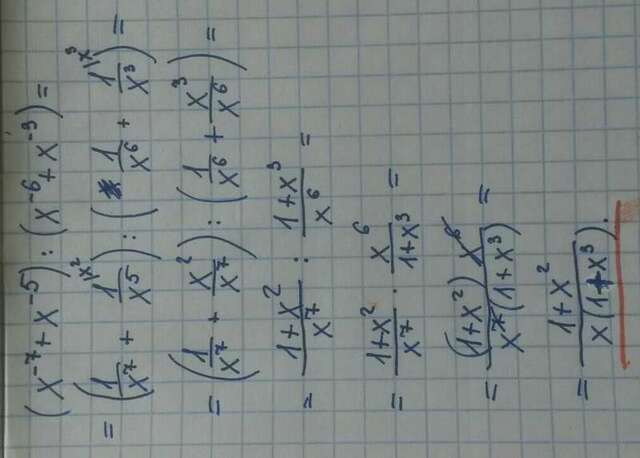 (x⁻⁷ + x⁻⁵) : (x⁻⁶ + x⁻³) =
= (1/x⁷ + 1^{1x²}/x⁵) : (1/x⁶ + 1^{1x³}/x³) =
= (1/x⁷ + x²/x⁷) : (1/x⁶ + x³/x⁶) =
= 1+x²/x⁷ : 1+x³/x⁶ =
= 1+x²/x⁷ · x⁶/1+x³ =
= (1+x²) x⁶/x⁷(1+x³) =
= 1+x²/x(1+x³).